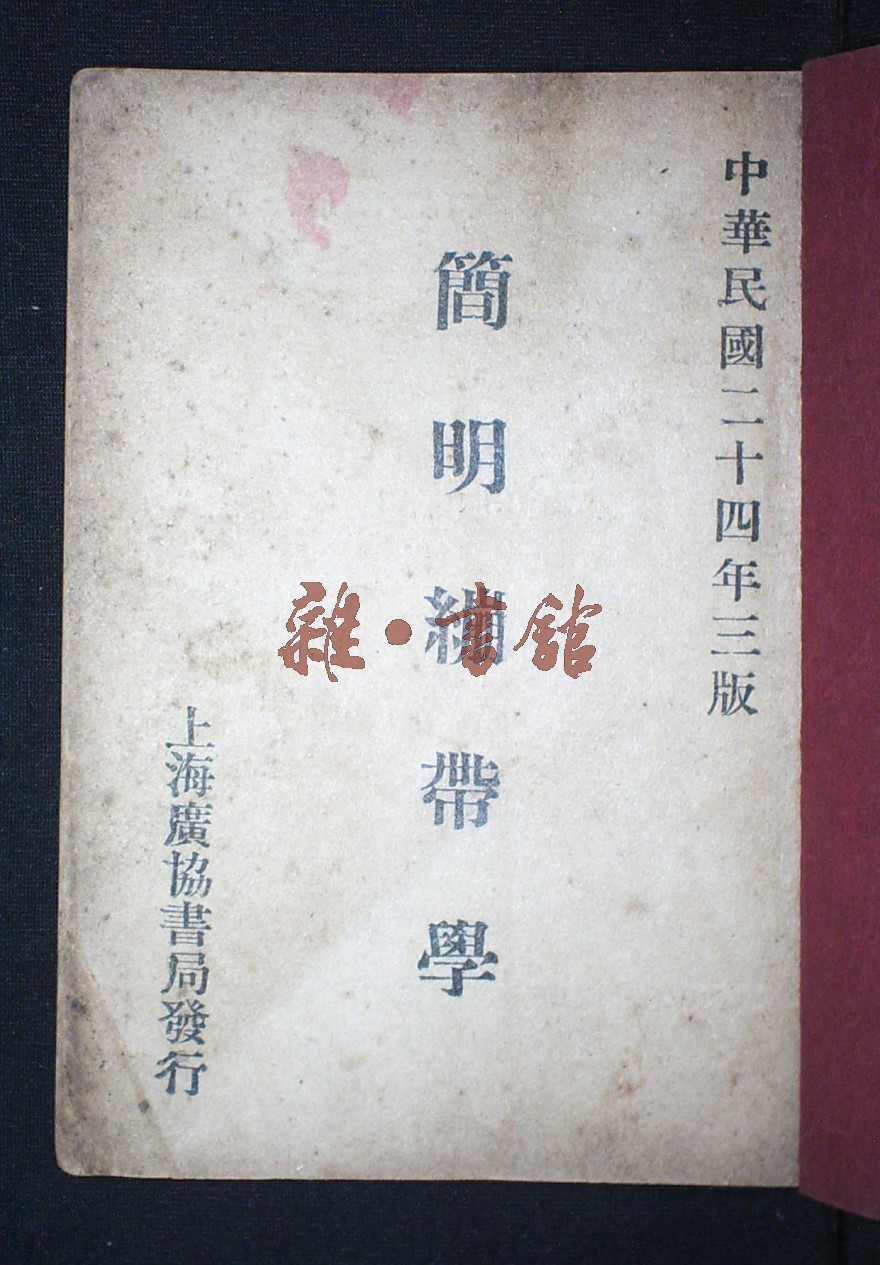 中華民國二十四年三版
簡明繃帶學
上海廣協書局發行
雜·書館